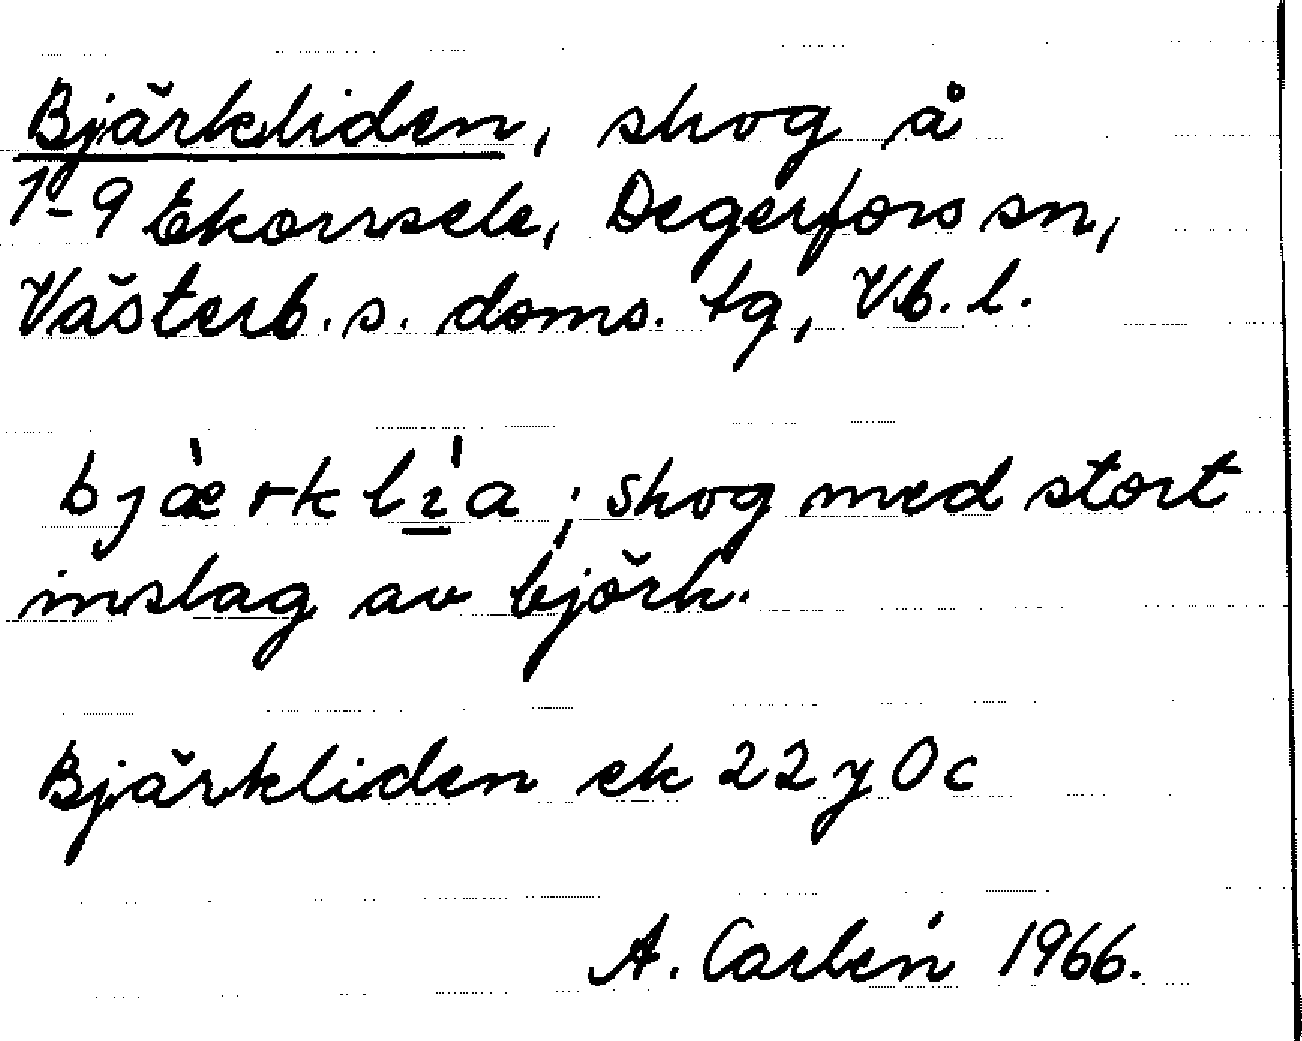 Bjärkliden, skog å
1-9 Ekorrsele, Degerfors sn,
Västerb. s. doms. tg, Vb. l.
bjæ̀rklɪ̱́a ; skog med stort
inslag av björk.
Bjärkliden ek 22 y 0 c
A. Carlén 1966.